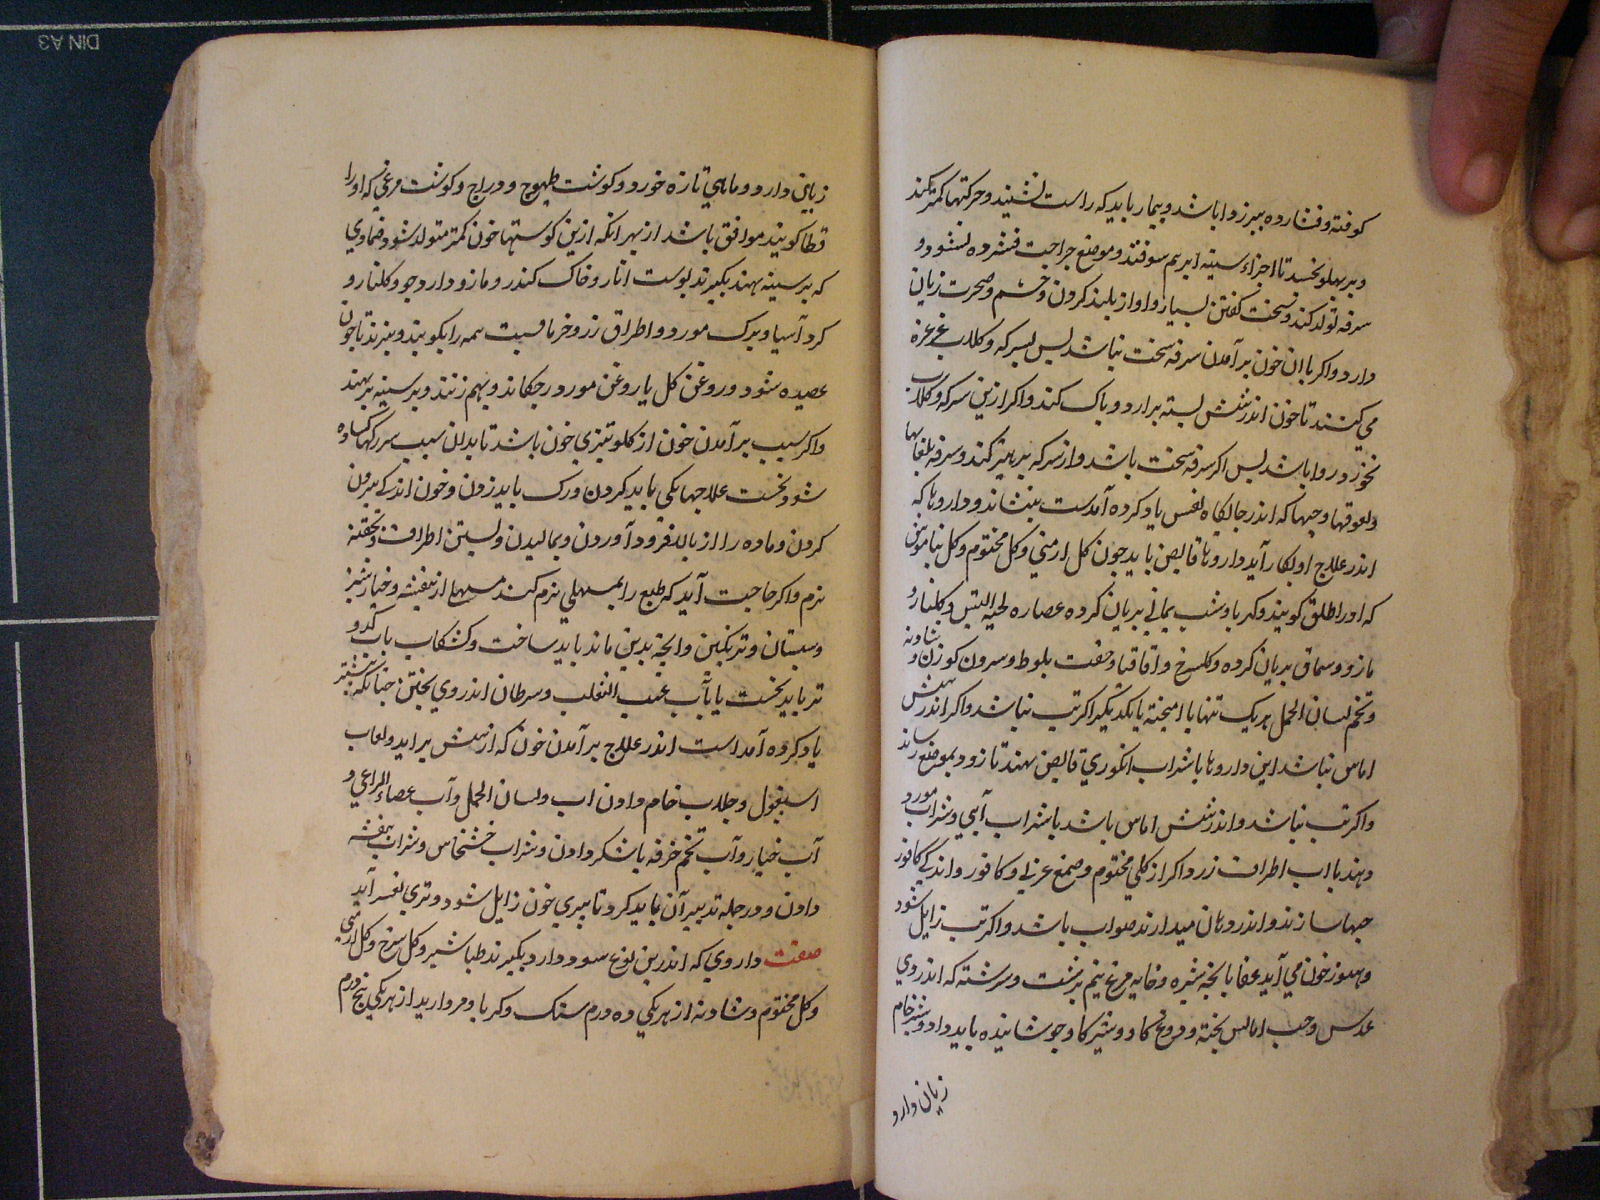 کوفته و فشارده ببرز روا باشد و بیمار باید که راست نشیند و حرکتها کمتر کند
و بر پهلو نخسبد تا اجزاء سینه ابر هم نیوفتد و موضع جراحت فشرده نشود و
سرفه تولد کند و سخت کفتن بسیار و اواز بلند کردن و خشم و ضجرت زیان
دارد و اکر با ان خون بر آمدن سرفه سخت نباشد پس بسرکه و کلاب غرغره
می کنند تا خون اندر شش بسته برارد و پاک کند و اکر ازین سرکه و کلاب
بخورد روا باشد پس اکر سرفه سخت باشد و از سرکه پرهیز کند و سرفه بلعابها
و لعوقها و حبها که اندر جایکاه نفس یاد کرده آمدست بنشاند و داروها که
اندر علاج او بکار آید داروها قابض باید چون کل ارمنی و کل مختوم و کل نیاموتی
که او را طلق کویند و کهربا و شب یمانی بریان کرده عصاره لحیه التیس و کلنار و
مازو و سماق بریان کرده و کلسرخ و اقاقیا و جفت بلوط و سرون کوزن و شادنه
و تخم لسان الحمل هریک تنها یا امیخته با یکدیکر اکر تب نباشد و اکر اندر شش
اماس نباشد این داروها با شراب انکوری قابض دهند تا زود بموضع رساند
و اکر تب نباشد و اندر شش اماس باشد با شراب آبی و شراب مورد
دهند یا اب اطراف رز و اکر از کل مختوم و صمغ عربی و کافور و اندکی کافور
حبها سازند و اندر دهان میدارند صواب باشد و اکر تب زایل شود
و هنوز خون می آید غذا پاچه بره و خایه مرغ نیم برشت و سرشته که اندر وی
عدس و حب الماس پخته و دوغ کاو و شیر کاو جوشانیده باید داد و پنیر خام
زیان دارو
زیان دارد و ماهی تازه خورد و کوشت طیهوج و دراج و کوشت مرغی که او را
قطا کویند موافق باشد از بهر انکه ازین کوشتها خون کمتر متولد شود ضمادی
که بر سینه نهند بکیرند پوست انار و خاک کندر و مازو و ارد جو و کلنار و
کرد آسیا و برک مورد و اطراق رز و خرماء پست همه را بکوبند و ببزند تا چون
عصیده شود و روغن کل یا روغن مورد برچکانند و بهم زنند و بر سینه بر نهند
و اکر سبب بر آمدن خون از کلو تیزی خون باشد تا بدان سبب سر رکها کشاده
شود نخست علاجهاء کلی باید کردن و رک باید زدن و خون اندکی بیرون
کردن و ماده را از بالا فرود آوردن و بمالیدن و بستن اطراف و بحقنه
نرم و اکر حاجت آید که طبع را بمسهلی نرم کنند مسهل از بنفشه و خیارشنبر
و سبستان و ترنکبین و انچه بدین ماند باید ساخت و کشکاب باب کدو
تر باید پخت یا بآب عنب الثعلب و سرطان اندر وی پختن چنانکه پیشتر
یاد کرده آمد است اندر علاج بر آمدن خون که از شش بر اید و لعاب
اسپغول و جلاب خام دادن اب و لسان الحمل و آب عصاء الراعی و
آب خیار و آب تخم خرفه با شکر دادن و شراب خشخاش و شراب بنفشه
دادن و در جمله تدبیر آن باید کرد تا تیزی خون زایل شود و تری بغر آید
صفت داروی که اندرین نوع سود دارد بکیرند طباشیر و کل سرخ و کل ارمنی
و کل مختوم و شادنه از هر یکی ده درم سنک و کهربا و مروارید از هر یکی پنج درم